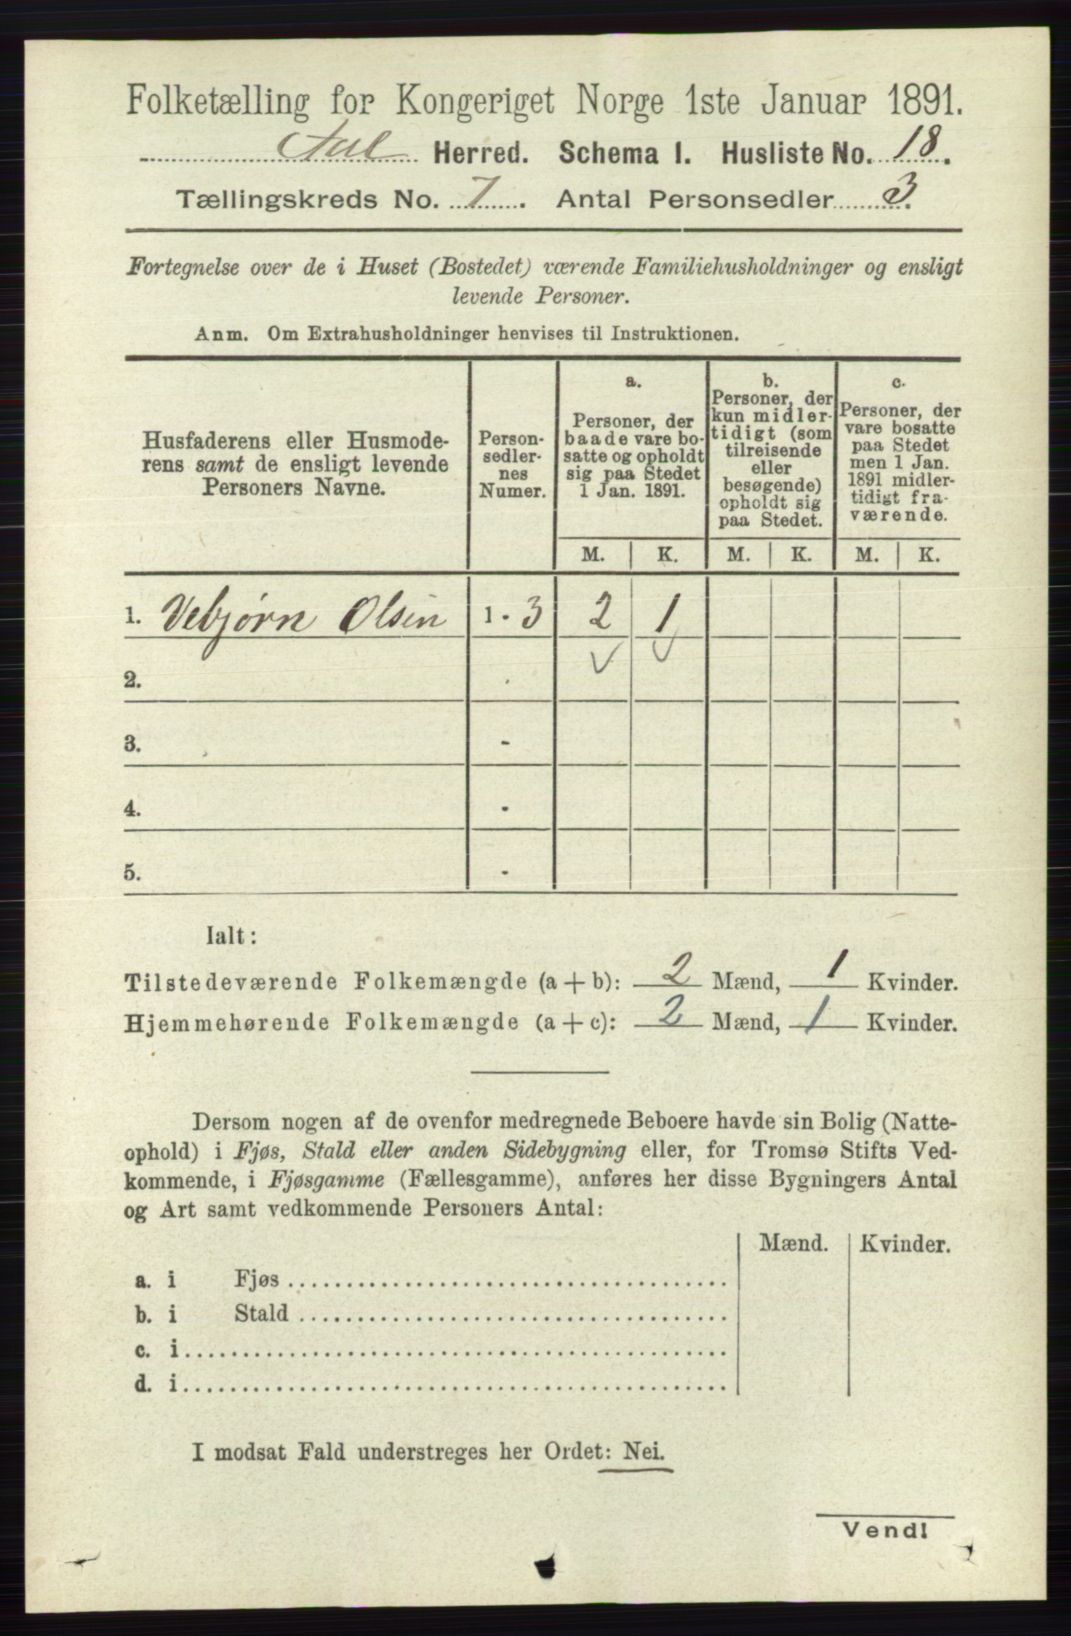 Folketælling for Kongeriget Norge 1ste Januar 1891.
Aal Herred. Schema I. Husliste No. 18.
Tællingskreds No. 7. Antal Personsedler 3.
Fortegnelse over de i Huset (Bostedet) værende Familiehusholdninger og ensligt
levende Personer.
Anm. Om Extrahusholdninger henvises til Instruktionen.
Husfaderens eller Husmode-
rens samt de ensligt levende
Personers Navne.
Person-
sedler-
nes
Numer.
a.
Personer, der
baade vare bo-
satte og opholdt
sig paa Stedet
1 Jan. 1891.
b.
Personer, der
kun midler-
tidigt (som
tilreisende
eller
besøgende)
opholdt sig
paa Stedet.
c.
Personer, der
vare bosatte
paa Stedet
men 1 Jan.
1891 midler-
tidigt fra-
værende.
M. K. M. K. M. K.
1. Vebjørn Olsen 1 - 3 2 1
2. -
3. -
4. -
5. -
Ialt:
Tilstedeværende Folkemængde (a + b): 2 Mænd, 1 Kvinder.
Hjemmehørende Folkemængde (a + c): 2 Mænd, 1 Kvinder.
Dersom nogen af de ovenfor medregnede Beboere havde sin Bolig (Natte-
ophold) i Fjøs, Stald eller anden Sidebygning eller, for Tromsø Stifts Ved-
kommende, i Fjøsgamme (Fællesgamme), anføres her disse Bygningers Antal
og Art samt vedkommende Personers Antal:
Mænd. Kvinder.
a. i Fjøs
b. i Stald
c. i
d. i
I modsat Fald understreges her Ordet: Nei.
Vend!